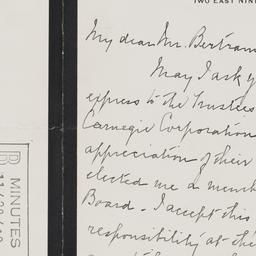 TWO EAST NINE
My dear Mr. Bertram
May I ask y
express to the Trustees
Carnegie Corporation
appreciation of their
elected me a memb
Board - I accept this
responsibility at the
MINUTES
11/20/19